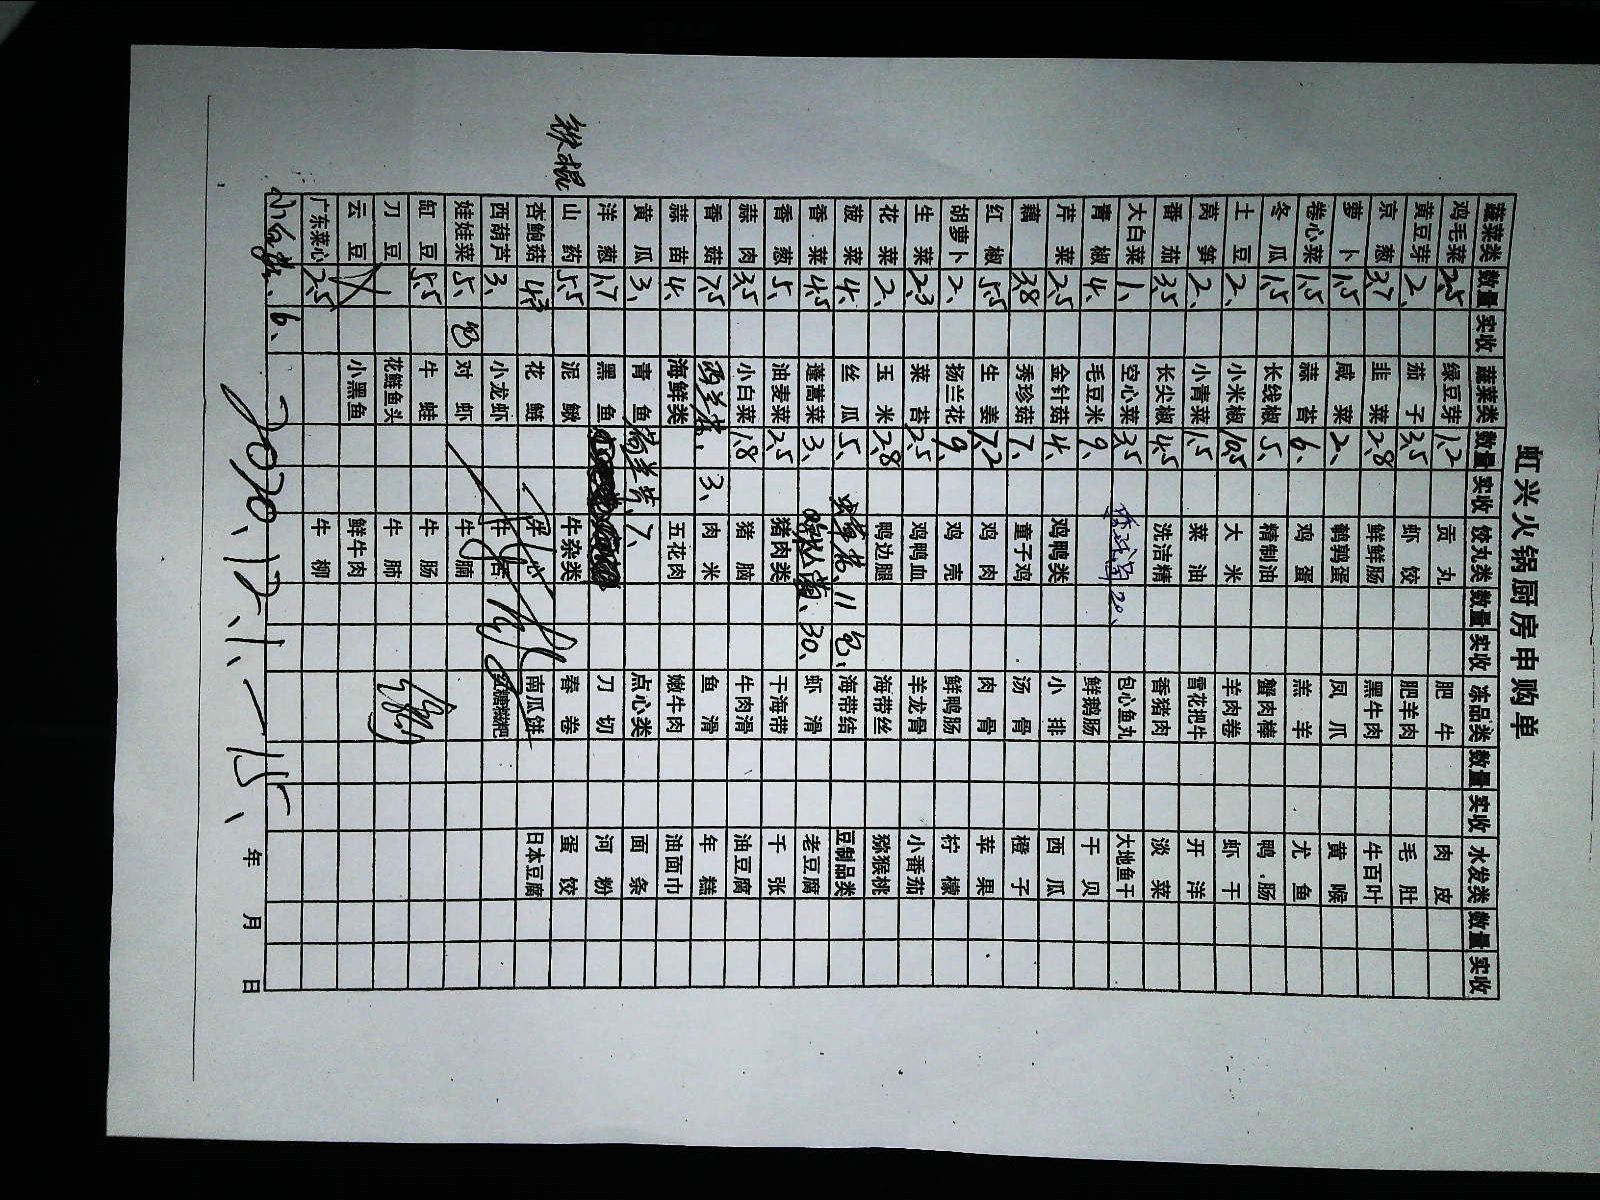 虹兴火锅厨房申购单
蔬菜类 数量 实收 蔬菜类 数量 实收 饺丸类 数量 实收 冻品类 数量 实收 水发类 数量 实收
鸡毛菜 2.5 绿豆芽 1.2 贡丸 肥牛 肉皮
黄豆芽 2、 茄子 3.5 虾饺 肥羊肉 毛肚
京葱 3.7 韭菜 2.8 鲜鲜肠 黑牛肉 牛百叶
萝卜 1.5 咸菜 2、 鹌鹑蛋 凤爪 黄喉
卷心菜 1.5 蒜苔 6、 鸡蛋 羔羊 尤鱼
冬瓜 1.5 长线椒 5、 精制油 蟹肉棒 鸭肠
土豆 2、 小米椒 10.5 大米 羊肉卷 虾干
莴笋 2、 小青菜 1.5 菜油 雪花把牛 开洋
番茄 3.5 长尖椒 4.5 洗洁精 香猪肉 淡菜
大白菜 1、 空心菜 3.5 20、 包心鱼丸 大地鱼干
青椒 4、 毛豆米 9、 鲜鹅肠 干贝
芹菜 2.5 金针菇 4、 鸡鸭类 小排 西瓜
藕 3.8 秀珍菇 7、 童子鸡 汤骨 橙子
红椒 5.5 生姜 7.2 鸡肉 肉骨 苹果
胡萝卜 2、 扬兰花 9、 鸡壳 鲜鸭肠 柠檬
生菜 2.3 菜苔 2.5 鸡鸭血 羊龙骨 小番茄
花菜 2、 玉米 2.8 鸭边腿 海带丝 猕猴桃
菠菜 4、 丝瓜 5、 11包、 海带结 豆制品类
香菜 4.5 蓬蒿菜 3、 30、 虾滑 老豆腐
香葱 5、 油麦菜 2.5 猪肉类 干海带 千张
蒜肉 3.5 小白菜 1.8 猪脑 牛肉滑 油豆腐
香菇 7.5 西兰花、 3、 肉米 鱼滑 年糕
蒜苗 4、 海鲜类 五花肉 嫩牛肉 油面巾
黄瓜 3、 青鱼 7、 点心类 面条
洋葱 1.7 黑鱼 刀切 河粉
山药 5.5 泥鳅 牛杂类 春卷 蛋饺
铁棍
杏鲍菇 4.3 花鲢 牛心 南瓜饼 日本豆腐
西葫芦 3、 小龙虾 牛 红糖糍粑
娃娃菜 5、 包 对虾 牛腩
缸豆 5.5 牛蛙 牛肠
刀豆 花鲢鱼头 牛肺
云豆 小黑鱼 鲜牛肉
广东菜心 2.5 牛柳
6、
年 月 日